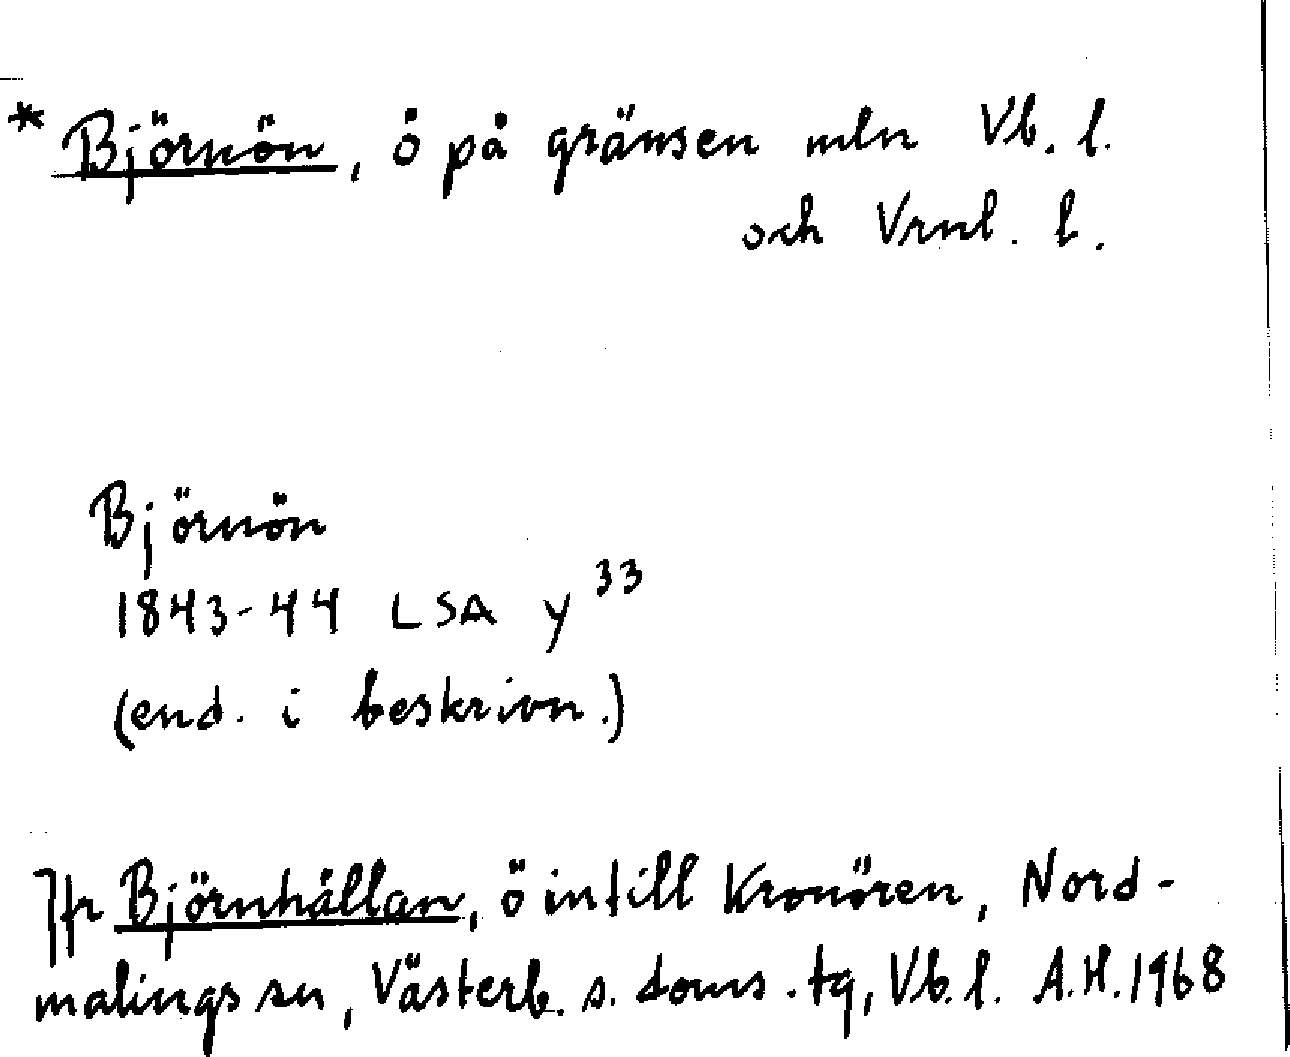 * Björnön, ö på gränsen mln Vb. l.
och Vrnl. l.
Björnön
1843-44 LSA y 33
(end. i beskrivn.)
Jfr Björnhällan, ö intill Kronören, Nord-
malings sn, Västerb. s. doms. tg, Vb. l. A.H. 1968